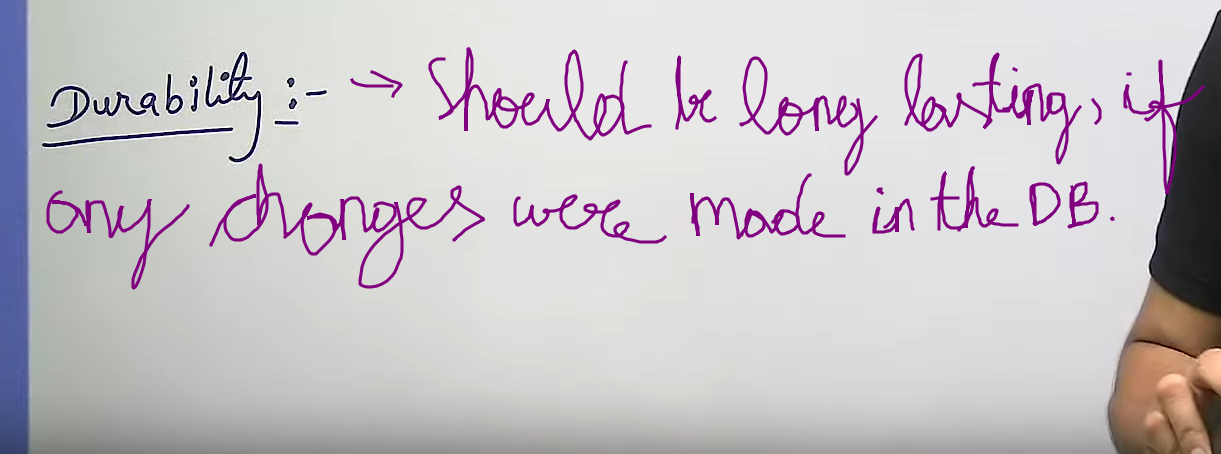 Durability :- → Should be long lasting, if
any changes were made in the DB.